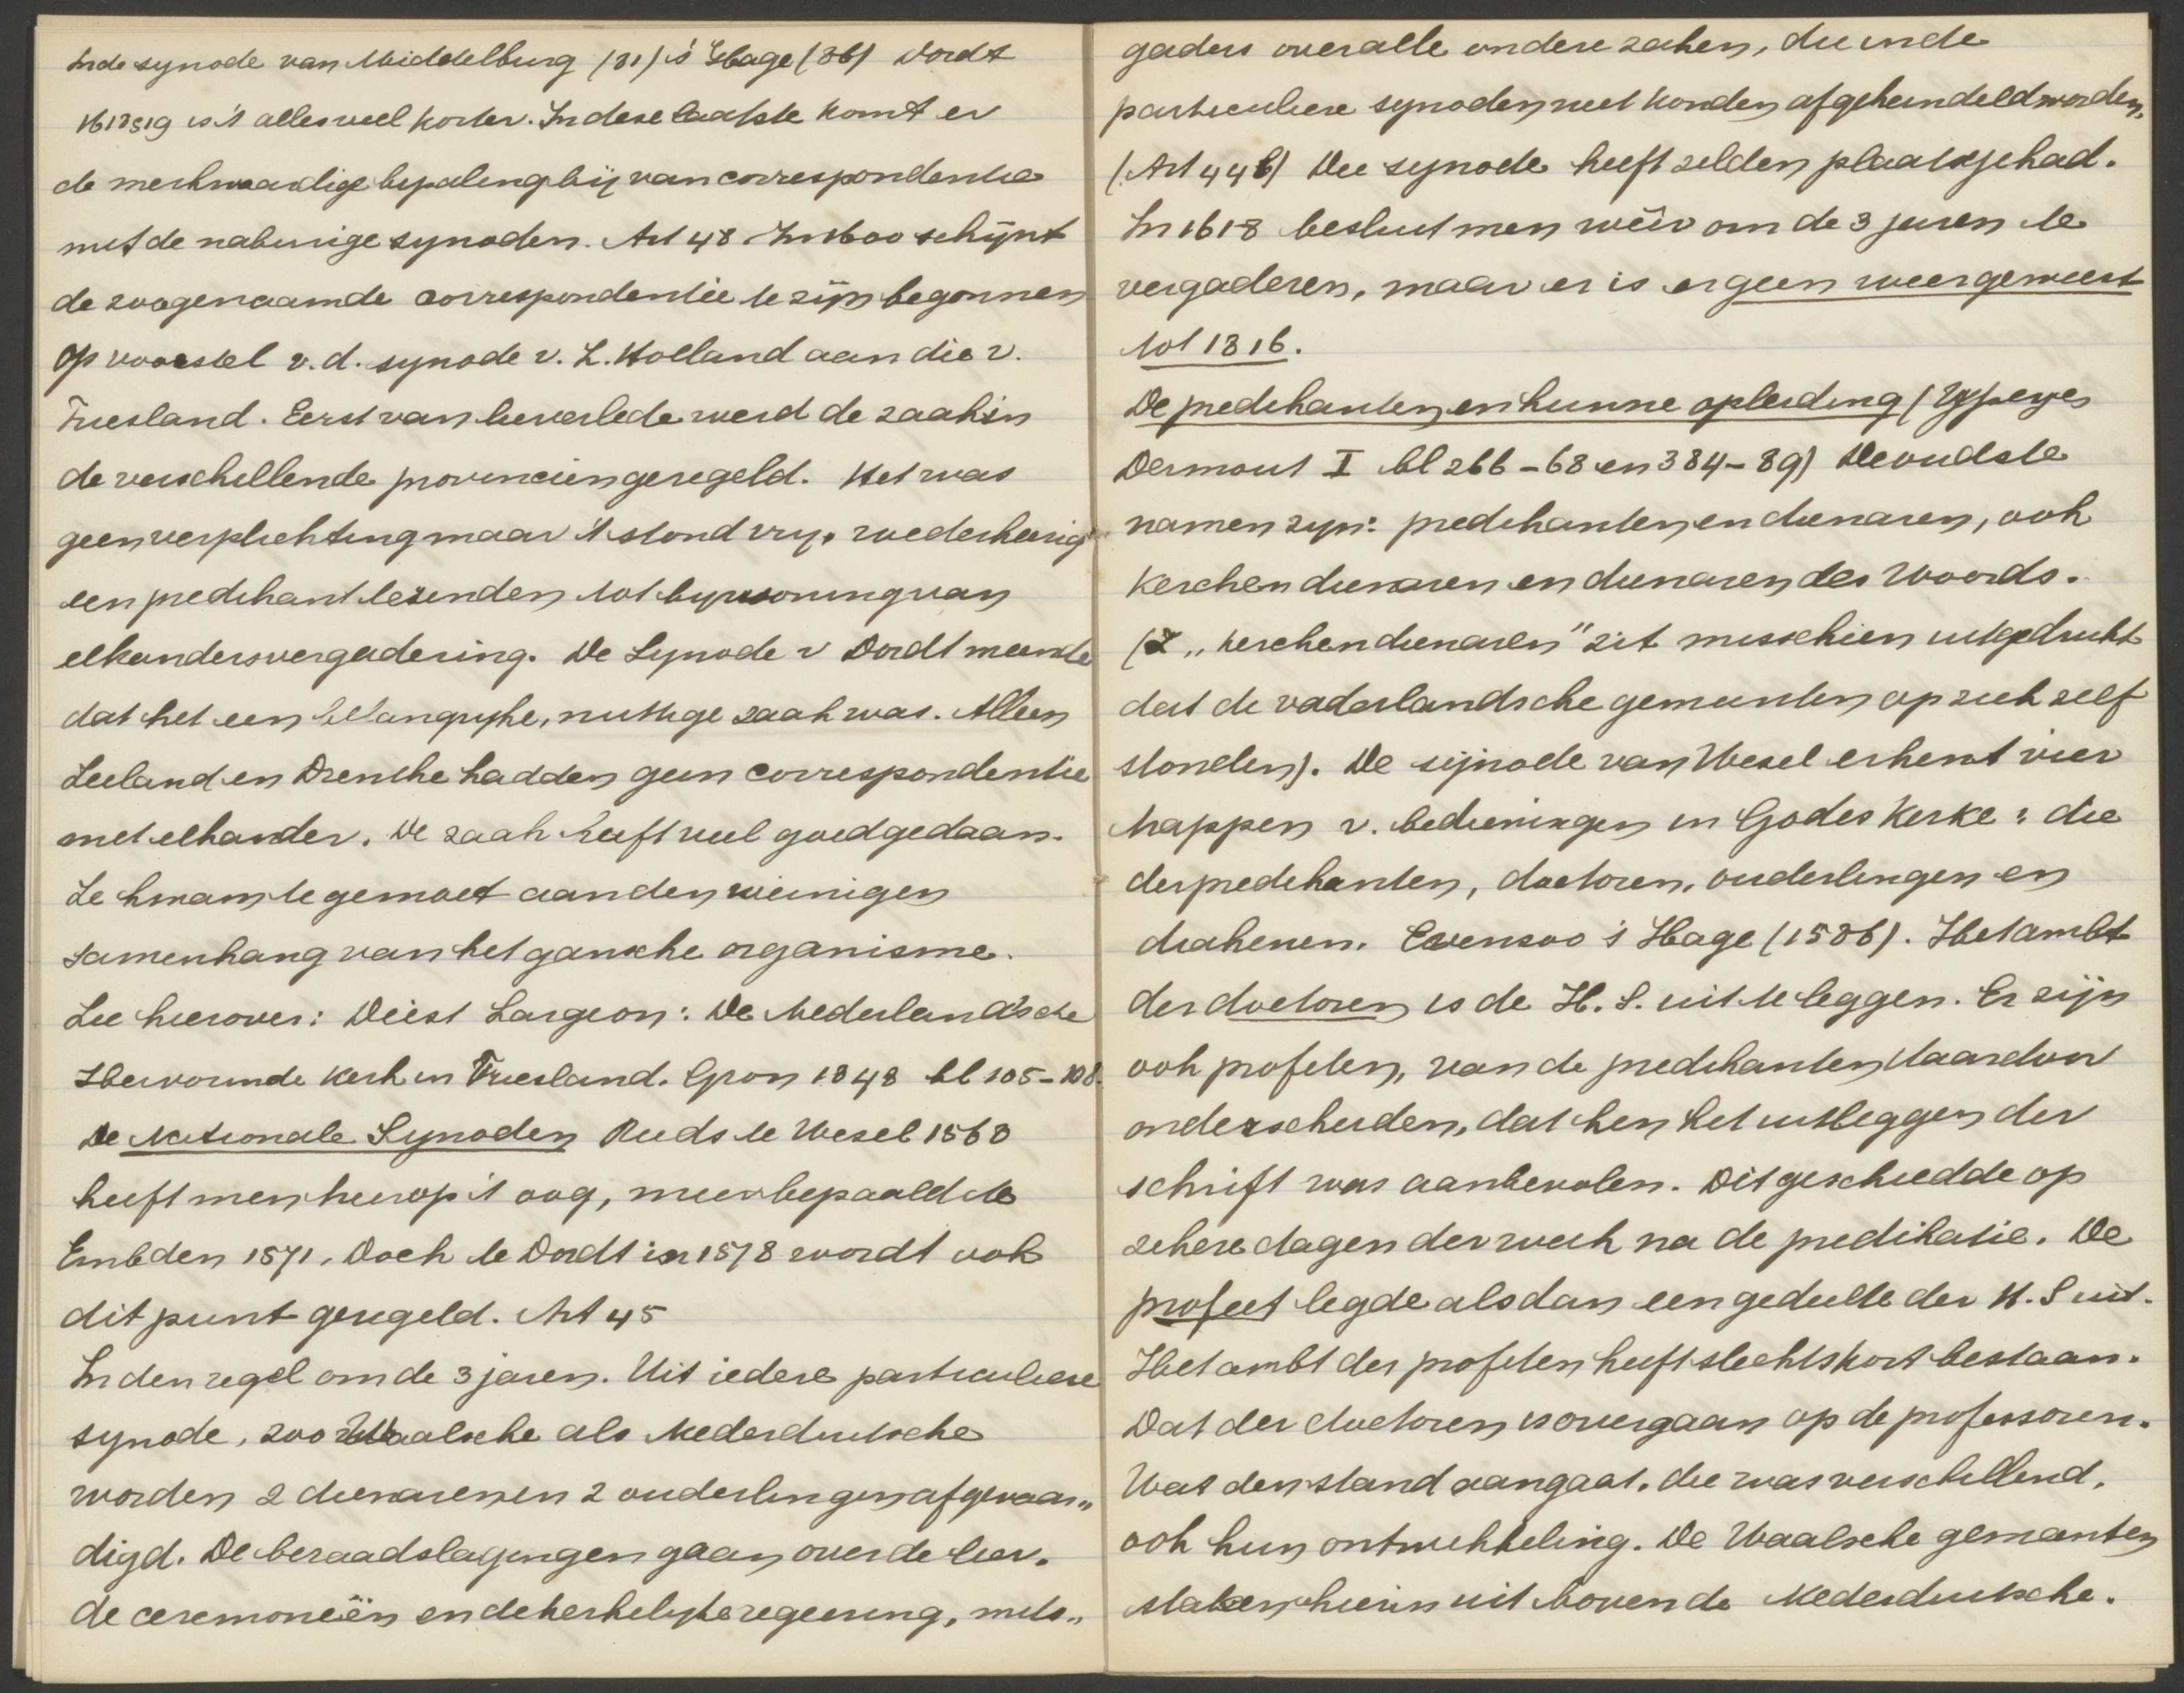 In de synode van Middelburg (81) 's Hage (86) Dordt
1618 & 19 is 't alles veel korter. In deze laatste komt er
de merkwaardige bepaling bij van correspondentie
met de naburige synoden. Art 48 In 1600 schijnt
de zoogenaamde correspondentie te zijn begonnen
op voorstel v. d. synode v. Z. Holland aan die v.
Friesland. Eerst van lieverlede werd de zaak in
de verschillende provinciën geregeld. Het was
geen verplichting maar 't stond vrij, wederkeerig
een predikant te zenden tot bijwoning van
elkanders vergadering. De Synode v Dordt meende
dat het een belangrijke, nuttige zaak was. Alleen
Zeeland en Drenthe hadden geen correspondentie
met elkander. De zaak heeft veel goed gedaan.
Ze kwam te gemoet aan den weinigen
samenhang van het gansche organisme.
Zie hierover: Diest Lorgion: De Nederlandsche
Hervormde Kerk in Friesland. Gron 1848 bl 105-108.
De Nationale Synoden Reeds te Wesel 1568
heeft men hierop 't oog, meer bepaald te
Embden 1571. Doch te Dordt in 1578 wordt ook
dit punt geregeld. Art 45
In den regel om de 3 jaren. Uit iedere particuliere
synode, zoo Waalsche als Nederduitsche
worden 2 dienaren en 2 ouderlingen afgevaar„
digd. De beraadslagingen gaan over de leer.
de ceremoneiën en de kerkelijke regeering, mits„
gaders over alle andere zaken, die in de
particuliere synoden niet konden afgehandeld worden.
(Art 44 b) Die synode heeft zelden plaats gehad.
In 1618 besluit men wéér om de 3 jaren te
vergaderen, maar er is er geen weer geweest
tot 1816.
De predikanten en hunne opleiding (Ypeyen
Dermout I bl 266-68 en 384-89) De oudste
namen zijn: predikanten en dienaren, ook
kerchendienaren en dienaren des Woords.
(I „kerchendienaren" zit misschien uitgedrukt
dat de vaderlandsche gemeenten op zich zelf
stonden). De sijnode van Wesel erkent vier
trappen v. bedieningen in Godes Kerke: die
der predikanten, doctoren, ouderlingen en
diakenen. Evenzoo 's Hage (1586). Het ambt
der doctoren is de H. S. uit te leggen. Er zijn
ook profeten, van de predikanten daardoor
onderscheiden, dat hen het uitleggen der
schrift was aanbevolen. Dit geschiedde op
zekere dagen der week na de predikatie. De
profeet legde alsdan een gedeelte der H. S uit.
Het ambt der profeten heeft slechts kort bestaan.
Dat der doctoren is overgaan op de professoren.
Wat den stand aangaat, die was verschillend,
ook hun ontwikkeling. De Waalsche gemeenten
staken hierin uit boven de Nederduitsche.